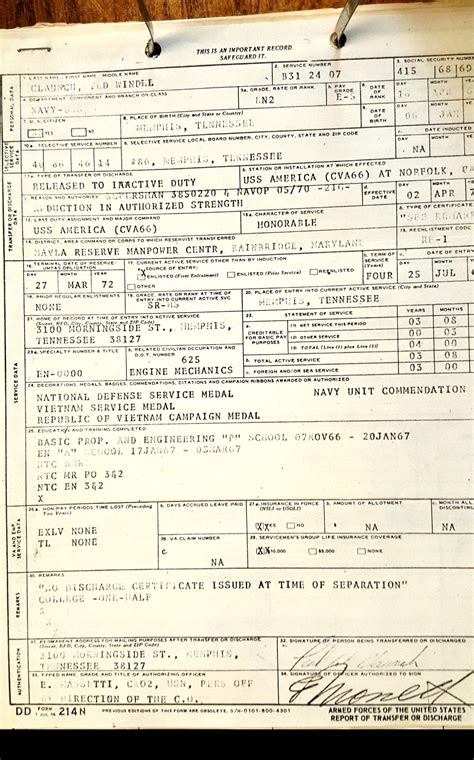 THIS IS AN IMPORTANT RECORD
SAFEGUARD IT.
PERSONAL DATA
1. LAST NAME, FIRST NAME, MIDDLE NAME
2. SERVICE NUMBER
B31 24 07
3. SOCIAL SECURITY NUMBER
415 68
4. DEPARTMENT, COMPONENT AND BRANCH OR CLASS
5a. GRADE, RATE OR RANK
EN2
b. PAY GRADE
6. DATE OF RANK
DAY MONTH
7. U. S. CITIZEN
YES NO
8. PLACE OF BIRTH (City and State or Country)
MEMPHIS, TENNESSEE
9. DATE OF BIRTH
DAY MONTH
10a. SELECTIVE SERVICE NUMBER
40 86 46 14
b. SELECTIVE SERVICE LOCAL BOARD NUMBER, CITY, COUNTY, STATE AND ZIP CODE
#86, MEMPHIS, TENNESSEE
c. DATE INDUCTED
DAY MONTH
NA
TRANSFER OR DISCHARGE DATA
11a. TYPE OF TRANSFER OR DISCHARGE
RELEASED TO INACTIVE DUTY
b. STATION OR INSTALLATION AT WHICH EFFECTED
USS AMERICA (CVA66) AT NORFOLK,
c. REASON AND AUTHORITY
BUPERSMAN 3850220 & NAVOP 05/70
IN AUTHORIZED STRENGTH
d. EFFECTIVE DATE
DAY MONTH
02 APR
12. LAST DUTY ASSIGNMENT AND MAJOR COMMAND
USS AMERICA (CVA66)
13a. CHARACTER OF SERVICE
HONORABLE
14. DISTRICT, AREA COMMAND OR CORPS TO WHICH RESERVIST TRANSFERRED
RESERVE MANPOWER CENTR, BAINBRIDGE, MARYLAND
15. REENLISTMENT CODE
RE-1
SERVICE DATA
16. TERMINAL DATE OF RESERVE/
DAY MONTH YEAR
27 MAR 72
17. CURRENT ACTIVE SERVICE OTHER THAN BY INDUCTION
a. SOURCE OF ENTRY:
ENLISTED (First Enlistment) ENLISTED (Prior Service) REENLISTED
OTHER
b. TERM OF SERVICE (Years)
FOUR
c. DATE OF ENTRY
DAY MONTH
25 JUL
18. PRIOR REGULAR ENLISTMENTS
NONE
19. GRADE, RATE OR RANK AT TIME OF ENTRY INTO CURRENT ACTIVE SVC
20. PLACE OF ENTRY INTO CURRENT ACTIVE SERVICE (City and State)
MEMPHIS, TENNESSEE
21. HOME OF RECORD AT TIME OF ENTRY INTO ACTIVE SERVICE
(Street, RFD, City, County, State and ZIP Code)
3100 MORNINGSIDE ST., MEMPHIS,
TENNESSEE 38127
22. STATEMENT OF SERVICE
YEARS MONTHS
a. CREDITABLE FOR BASIC PAY PURPOSES
(1) NET SERVICE THIS PERIOD
03 08
(2) OTHER SERVICE
00 04
(3) TOTAL (Line (1) plus Line (2))
04 00
b. TOTAL ACTIVE SERVICE
03 08
c. FOREIGN AND/OR SEA SERVICE
03 00
23a. SPECIALTY NUMBER & TITLE
EN-0000
b. RELATED CIVILIAN OCCUPATION AND D.O.T. NUMBER
625
ENGINE MECHANICS
24. DECORATIONS, MEDALS, BADGES, COMMENDATIONS, CITATIONS AND CAMPAIGN RIBBONS AWARDED OR AUTHORIZED
NATIONAL DEFENSE SERVICE MEDAL NAVY UNIT COMMENDATION
VIETNAM SERVICE MEDAL
REPUBLIC OF VIETNAM CAMPAIGN MEDAL
25. EDUCATION AND TRAINING COMPLETED
BASIC PROP. AND ENGINEERING "P" SCHOOL 07NOV66 - 20JAN67
EN "A" SCHOOL 17JAN67 - 03MAR67
NTC
NTC MR PO 3&2
NTC EN 3&2
X
VA AND EMP. SERVICE DATA
26a. NON-PAY PERIODS TIME LOST (Preceding Two Years)
EXLV NONE
TL NONE
b. DAYS ACCRUED LEAVE PAID
27a. INSURANCE IN FORCE (NSLI or USGLI)
YES NO
b. AMOUNT OF ALLOTMENT
NA
c. MONTH
NA
28. VA CLAIM NUMBER
C.
NA
29. SERVICEMEN'S GROUP LIFE INSURANCE COVERAGE
$10,000 $5,000 NONE
REMARKS
30. REMARKS
"NO DISCHARGE CERTIFICATE ISSUED AT TIME OF SEPARATION"
COLLEGE -ONE-HALF
AUTHENTICATION
31. PERMANENT ADDRESS FOR MAILING PURPOSES AFTER TRANSFER OR DISCHARGE
(Street, RFD, City, County, State and ZIP Code)
3100 MORNINGSIDE ST., MEMPHIS,
TENNESSEE 38127
32. SIGNATURE OF PERSON BEING TRANSFERRED OR DISCHARGED
33. TYPED NAME, GRADE AND TITLE OF AUTHORIZING OFFICER
USN, PERS OFF
BY DIRECTION OF THE C.O.
34. SIGNATURE OF OFFICER AUTHORIZED TO SIGN
DD FORM 214N
PREVIOUS EDITIONS OF THIS FORM ARE OBSOLETE. S/N-0101-800-4301
ARMED FORCES OF THE UNITED STATES
REPORT OF TRANSFER OR DISCHARGE